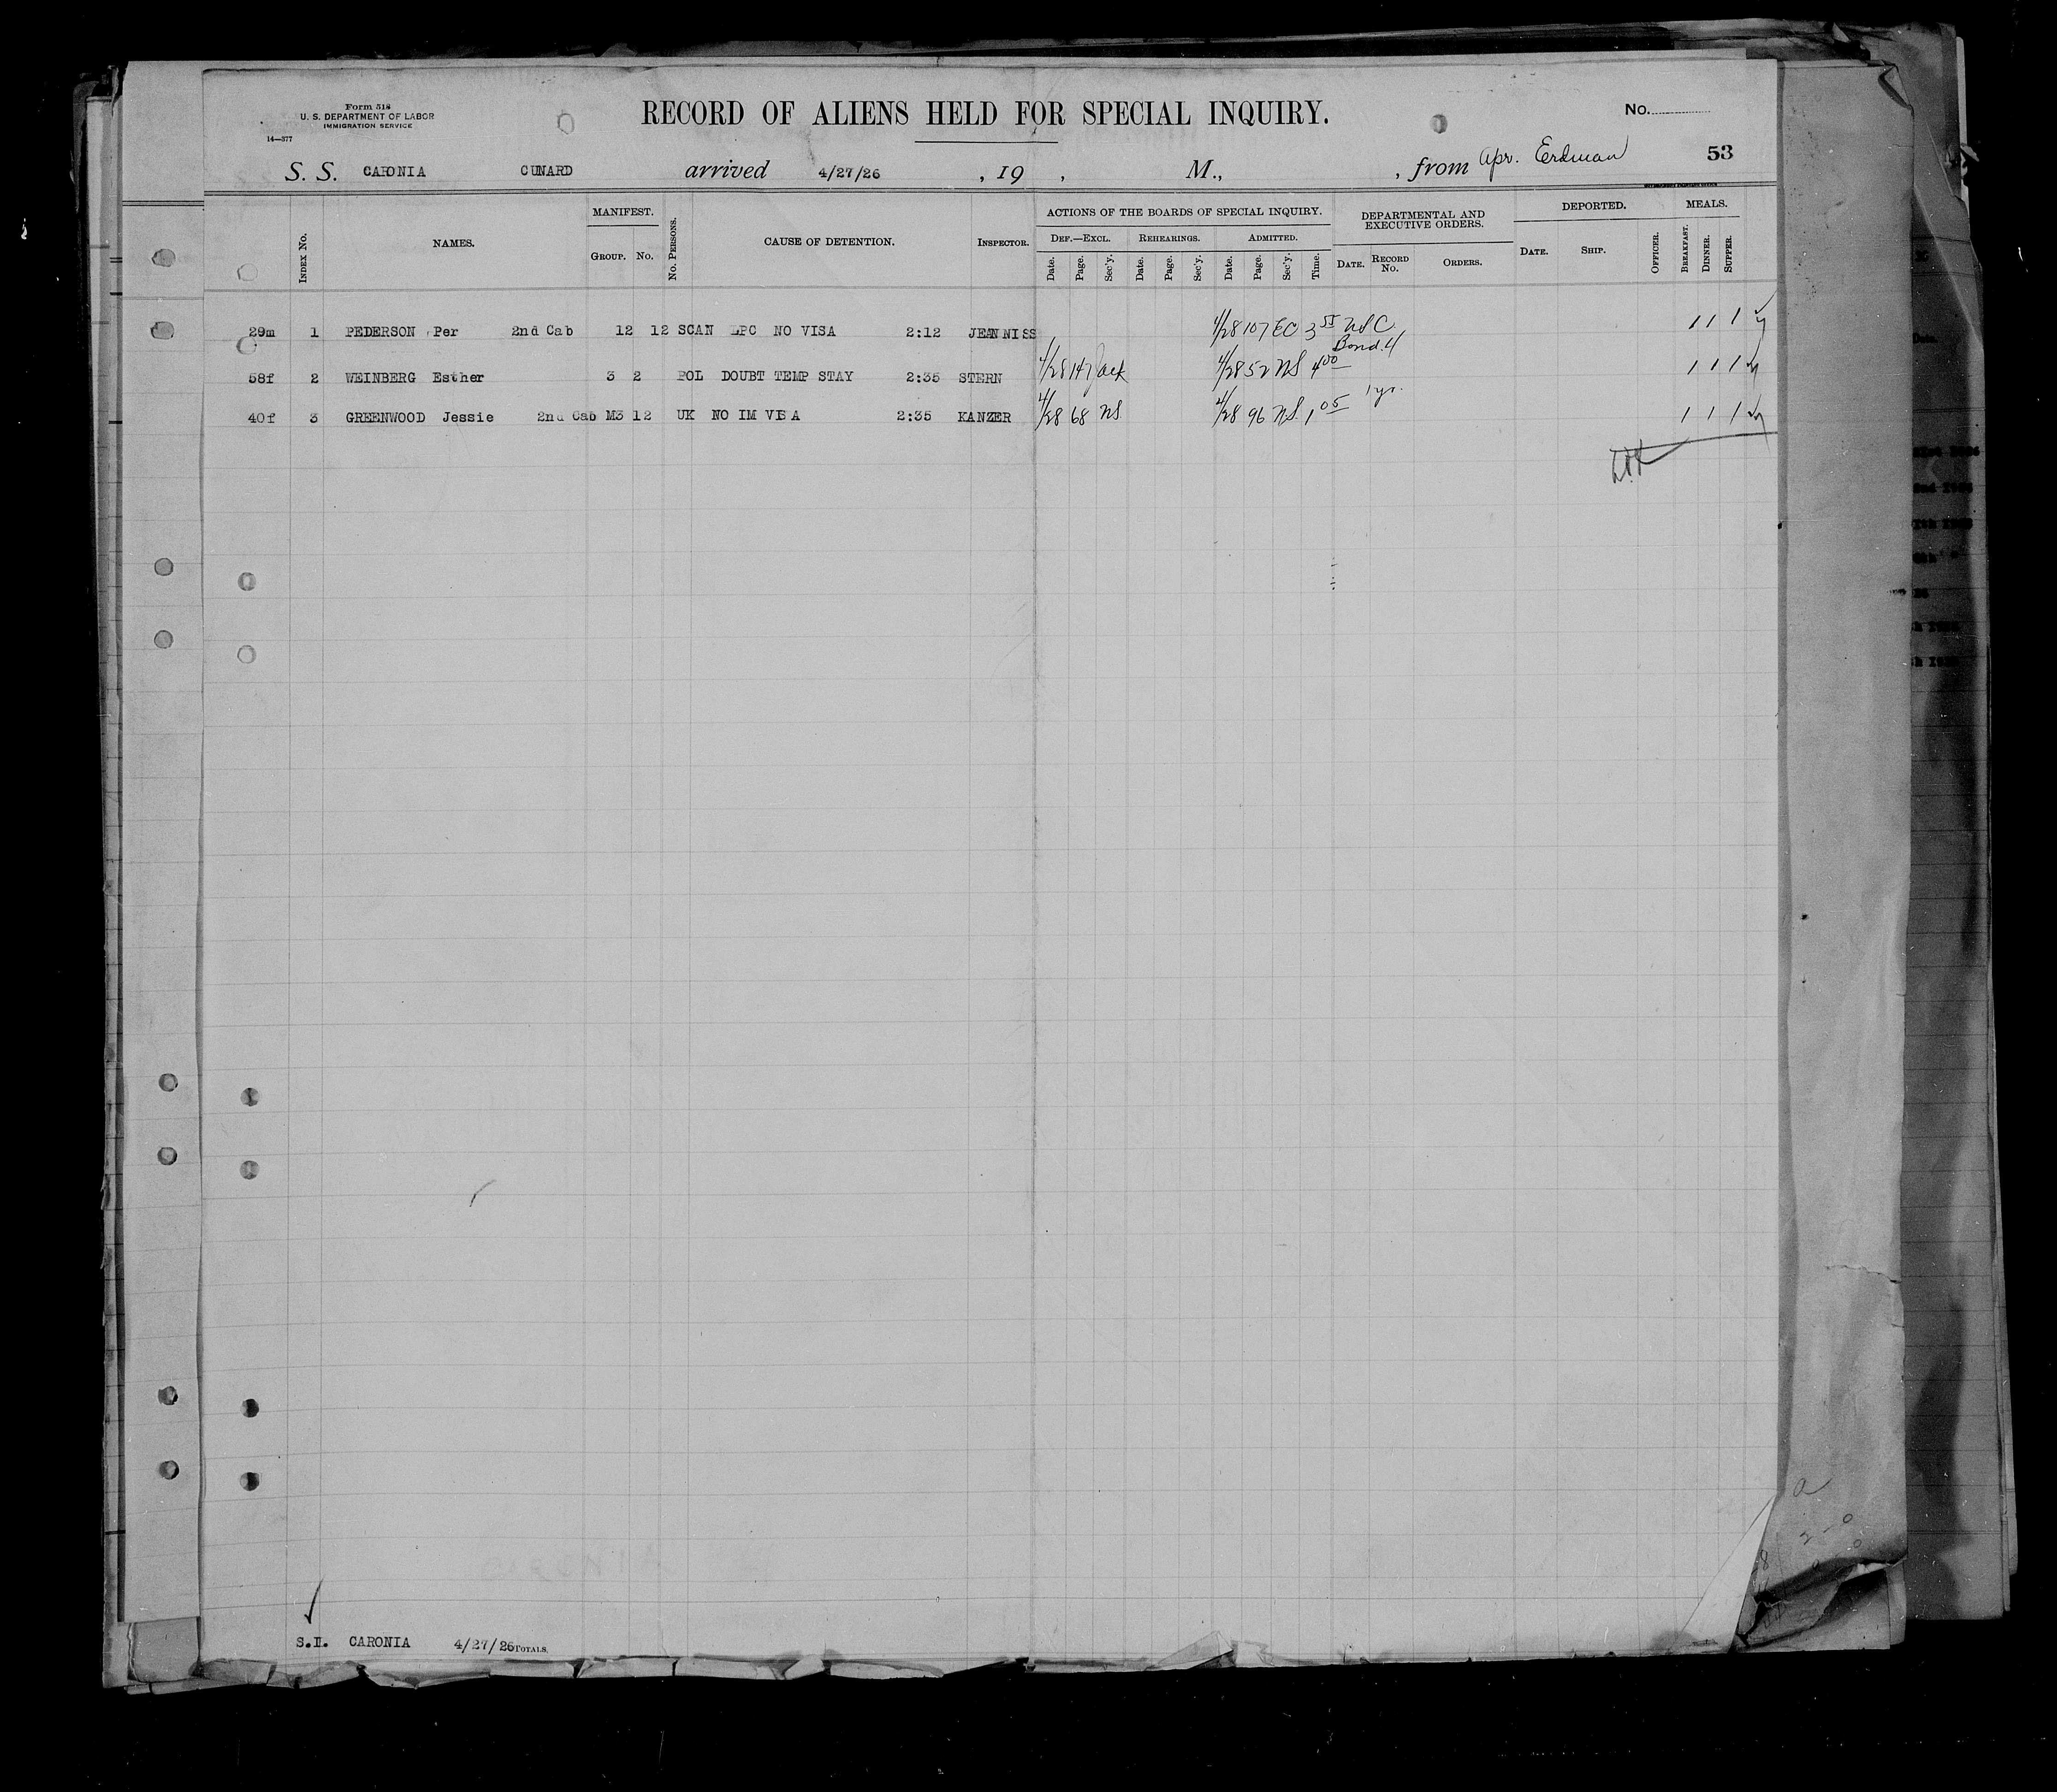 Form 518
U. S. DEPARTMENT OF LABOR
IMMIGRATION SERVICE
14—377
RECORD OF ALIENS HELD FOR SPECIAL INQUIRY.
No.
53
S. S. CARONIA CUNARD arrived 4/27/26 , 19 , M., , from Apr. Erdman
INDEX No.
NAMES.
MANIFEST.
GROUP. No.
No. PERSONS.
CAUSE OF DETENTION.
INSPECTOR.
ACTIONS OF THE BOARDS OF SPECIAL INQUIRY.
DEF.—EXCL. REHEARINGS. ADMITTED.
Date. Page. Sec'y. Date. Page. Sec'y. Date. Page. Sec'y. Time.
DEPARTMENTAL AND
EXECUTIVE ORDERS.
DATE. RECORD No. ORDERS.
DEPORTED.
DATE. SHIP. OFFICER.
MEALS.
BREAKFAST. DINNER. SUPPER.
29m 1 PEDERSON Per 2nd Cab 12 12 SCAN LPC NO VISA 2:12 JEANNISS 4/28 107 EC 3 55 NSC 1 1 1
Bond.
58f 2 WEINBERG Esther 3 2 POL DOUBT TEMP STAY 2:35 STERN 4/28 4/28 52 NS 4 00 1 1 1
1 yr.
40f 3 GREENWOOD Jessie 2nd Cab M3 12 UK NO IM VISA 2:35 KANZER 4/28 68 NS 4/28 96 NS. 1 05 1 1 1
S.I. CARONIA 4/27/26 TOTALS.